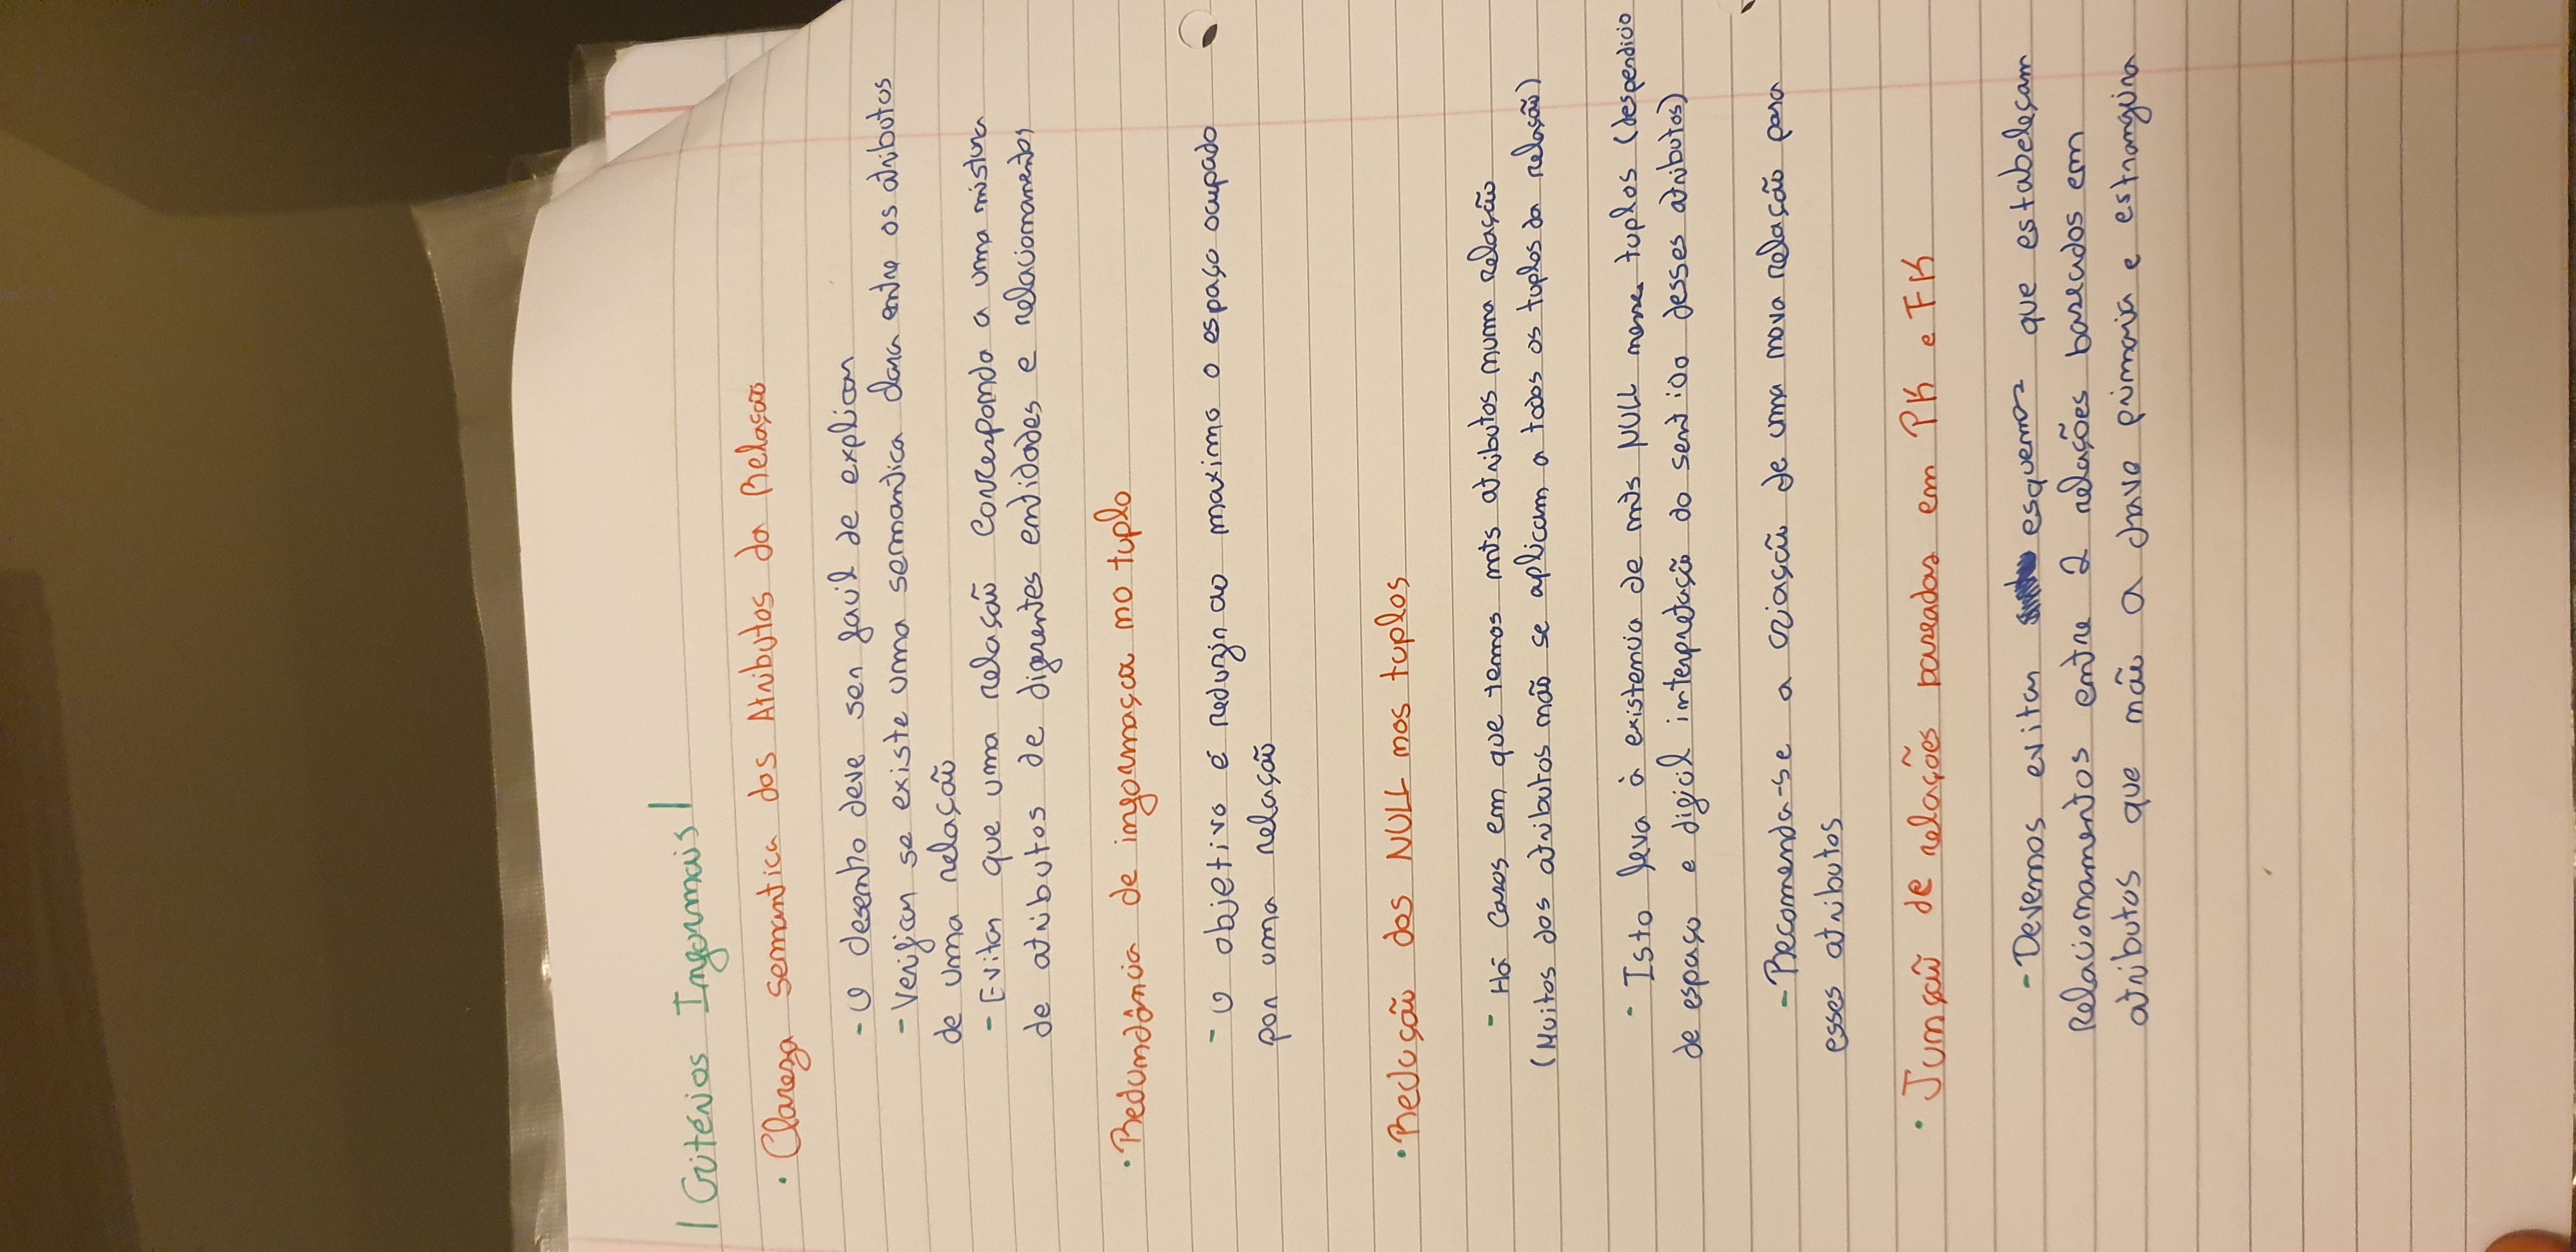 | Critérios Informais |
· Clareza semantica dos Atributos da Relação
- O desenho deve ser facil de explicar
- Verificar se existe uma semantica clara entre os atributos
de uma relação
- Evitar que uma relação corresponda a uma mistura
de atributos de diferentes entidades e relacionamentos
· Redundância de informaçao no tuplo
- O objetivo é reduzir ao maximo o espaço ocupado
por uma relação
· Redução dos NULL nos tuplos
- Há casos em que temos mts atributos numa relação
(Muitos dos atributos não se aplicam a todos os tuplos da relação)
- Isto leva à existencia de mts NULL tuplos (despendicio
de espaço e dificil interpretação do sentido desses atributos)
- Recomenda-se a criação de uma nova relação para
esses atributos
· Junção de relações baseadas em PK e FK
- Devemos evitar esquemas que estabeleçam
Relacionamentos entre 2 relações baseados em
atributos que não a chave primaria e estrangeira